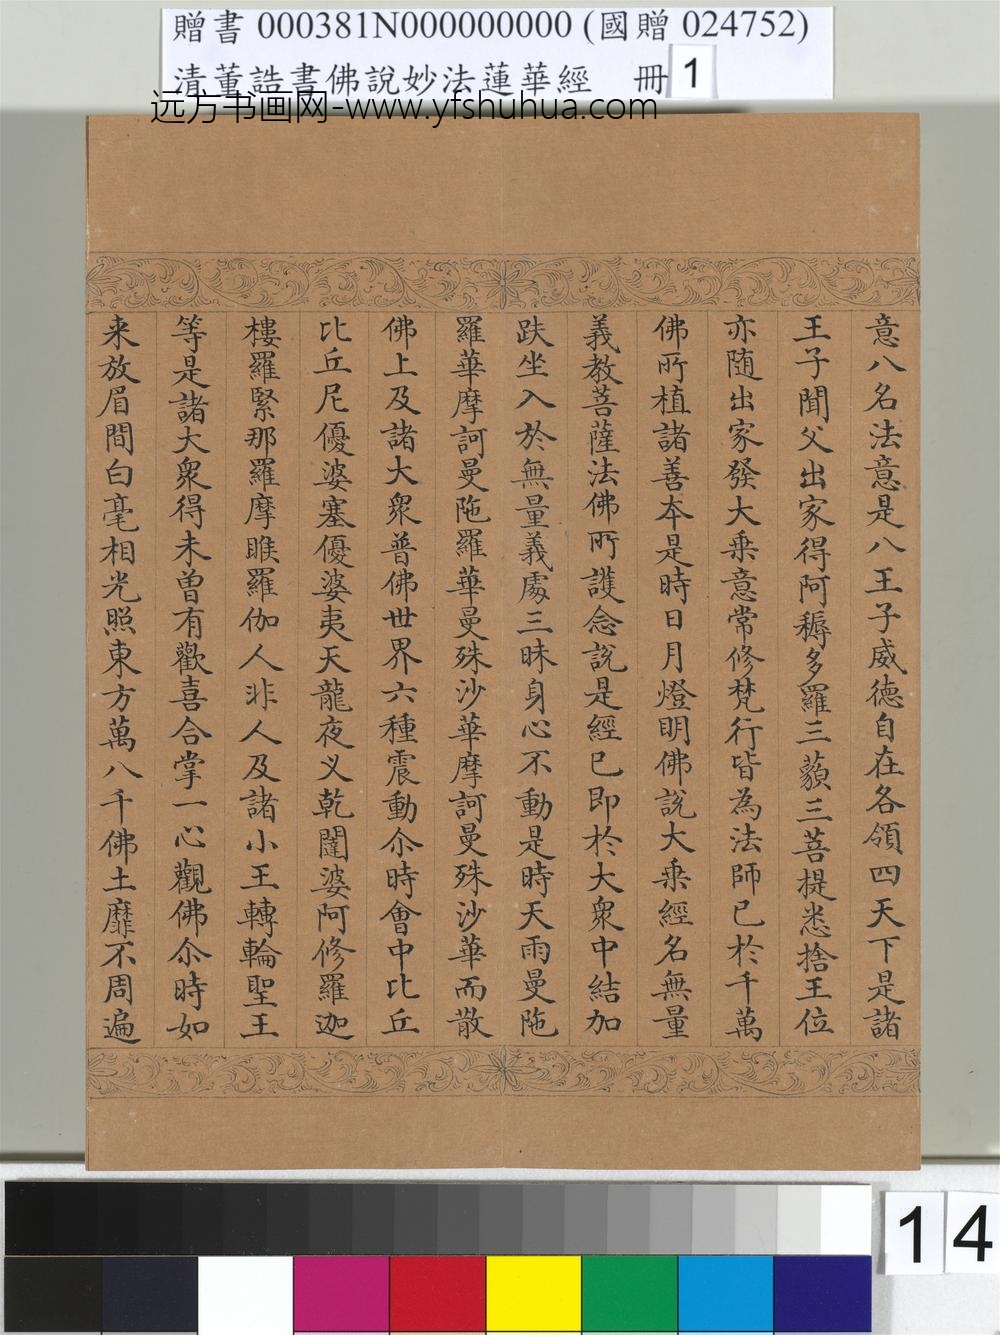 贈書 000381N000000000 (國贈 024752)
清董誥書佛說妙法蓮華經 冊 1
远方书画网-www.yfshuhua.com
意八名法意是八王子威德自在各領四天下是諸
王子聞父出家得阿耨多羅三藐三菩提悉捨王位
亦随出家發大乘意常修梵行皆為法師已於千萬
佛所植諸善本是時日月燈明佛說大乘經名無量
義教菩薩法佛所護念說是經已即於大衆中結加
趺坐入於無量義處三昧身心不動是時天雨曼陁
羅華摩訶曼陁羅華曼殊沙華摩訶曼殊沙華而散
佛上及諸大衆普佛世界六種震動尒時會中比丘
比丘尼優婆塞優婆夷天龍夜叉乾闥婆阿修羅迦
樓羅緊那羅摩睺羅伽人非人及諸小王轉輪聖王
等是諸大衆得未曾有歡喜合掌一心觀佛尒時如
来放眉間白毫相光照東方萬八千佛土靡不周遍
14